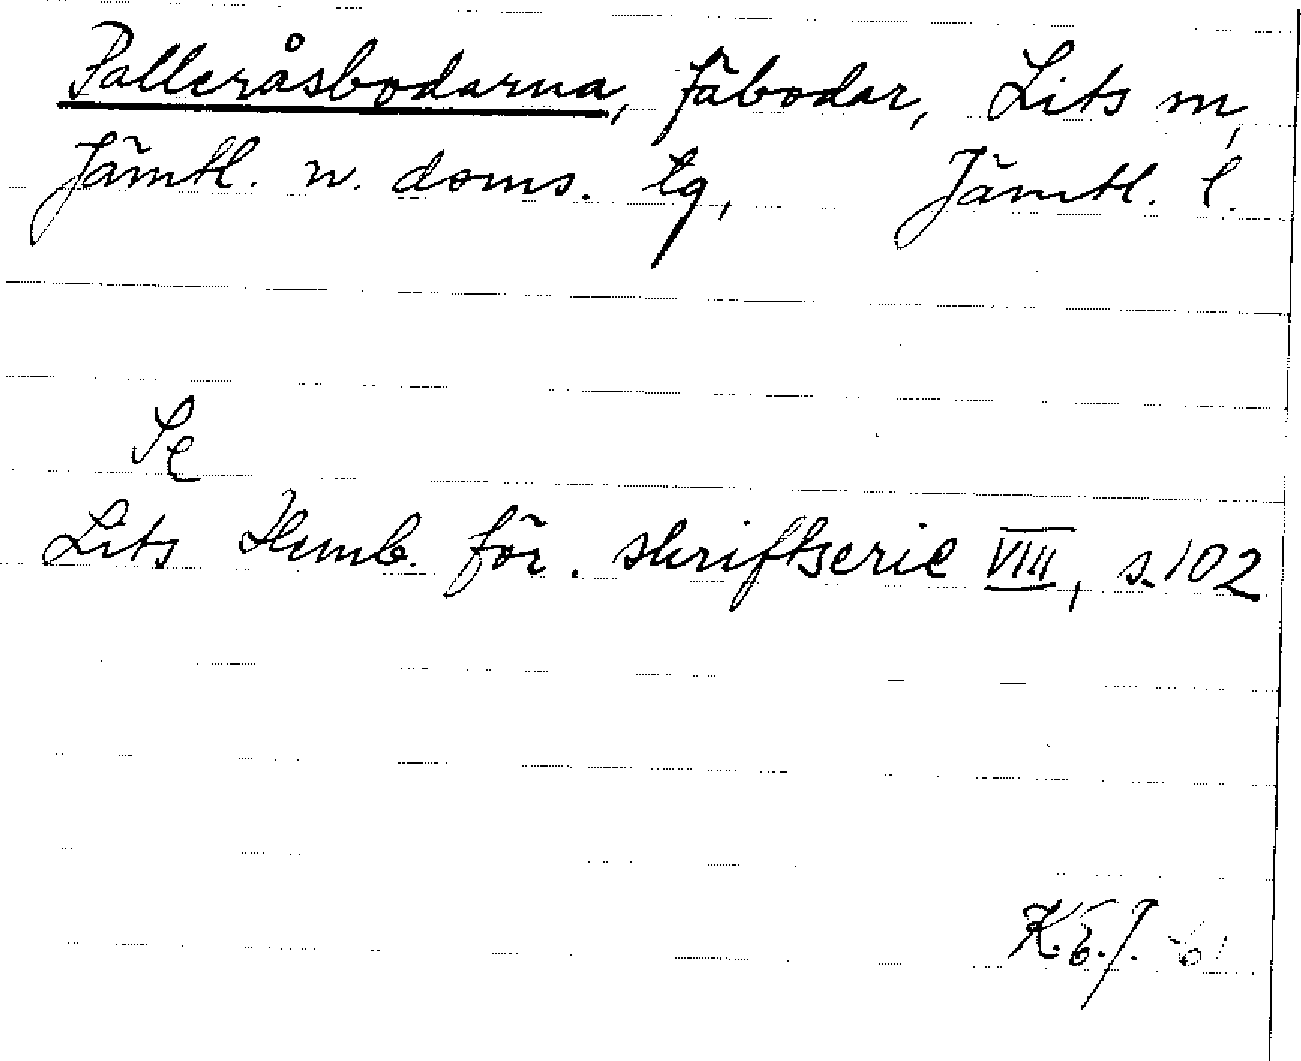 Palleråsbodarna, fäbodar, Lits sn,
Jämtl. n. doms. tg, Jämtl. l.
Se
Lits Hemb. för. skriftserie VIII, s. 102
K.E.J. -61